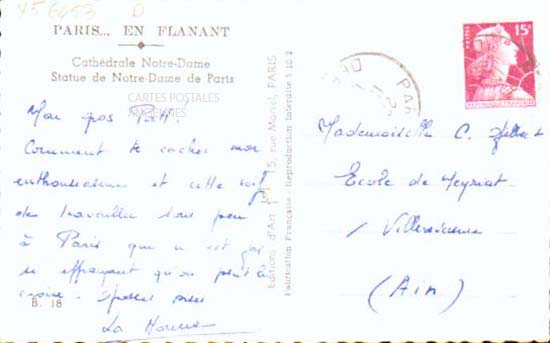 756053 D
PARIS... EN FLANANT
Cathédrale Notre-Dame
Statue de Notre-Dame de Paris
CARTES POSTALES
ANCIENNES
Mon gros
Comment te cacher mon
enthousiasme et cette soif
de travailler sous peu
à Paris que n'est pas
si effrayant qu'on peut le
croire.
La
B. 18
Editions d'Art 15, rue Martel, PARIS
Fabrication Française - Reproduction Interdite
POSTES
15F
REPUBLIQUE FRANÇAISE
PAR
Mademoiselle C.
Ecole de Meyriat
Villereversure
(Ain)